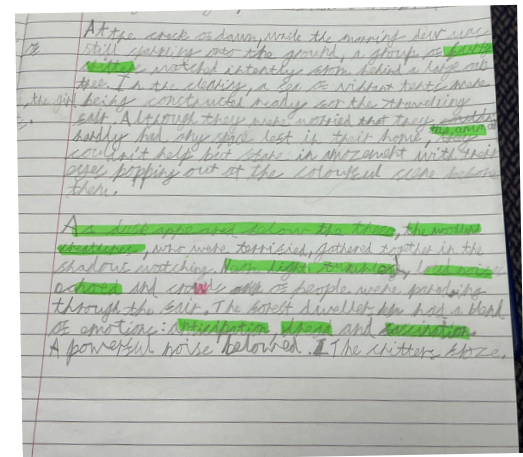 At the crack of dawn, while the morning dew was
still clinging onto the ground, a group of
watched intently from behind a large oak
tree. In the clearing, a sea of vibrant tents were
being constructed ready for the travelling
fair. Although they were worried that they
hardly had any space left in their home, they
couldn't help but stare in amazement with their
eyes popping out at the colourful scene before
them.
As dusk appeared below the trees, the woodland
creatures, who were terrified, gathered together in the
shadows watching. light loud noises
echoed and crowds of people were parading
through the fair. The forest dweller had a blend
of emotions: anticipation dread and fascination.
A powerful noise belowed. The critters froze.